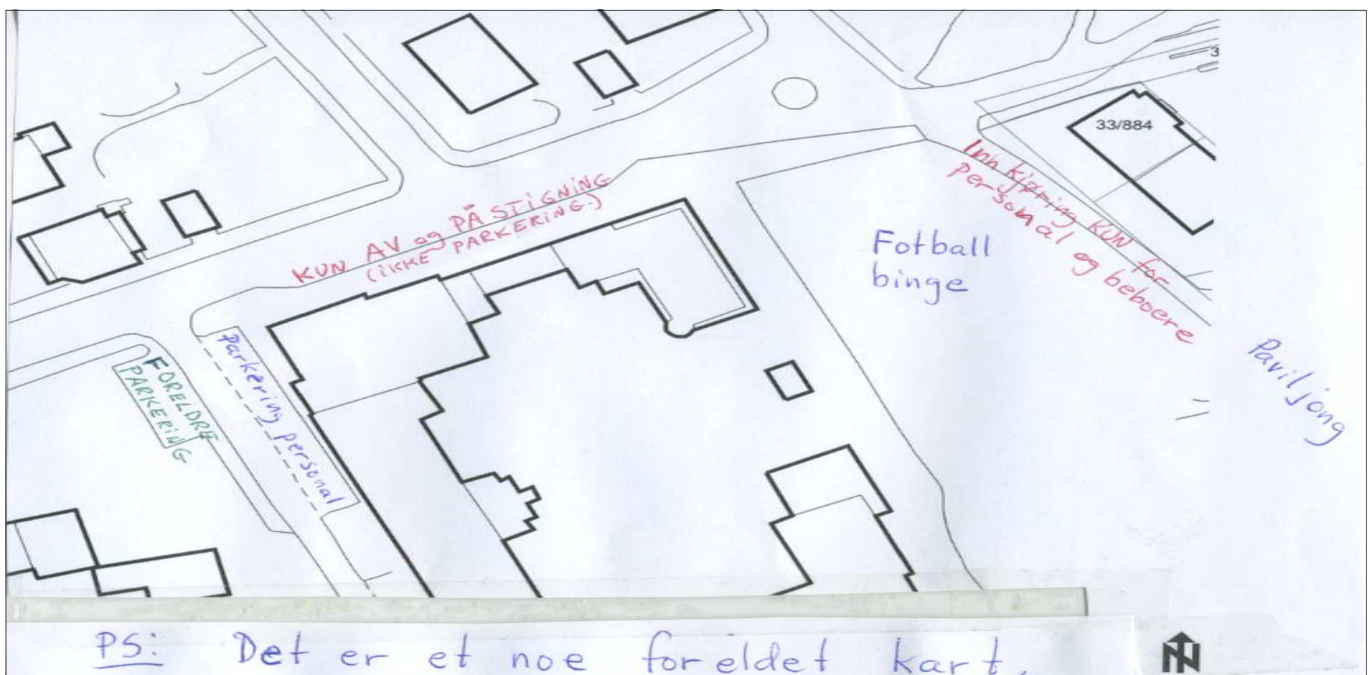 3
33/884
KUN AV og PÅ STIGNING
(IKKE PARKERING.)
Innkjøring KUN for
personal og beboere
Fotball
binge
Paviljong
FORELDRE
PARKERING
Parkering personal
PS: Det er et noe foreldet kart.
N